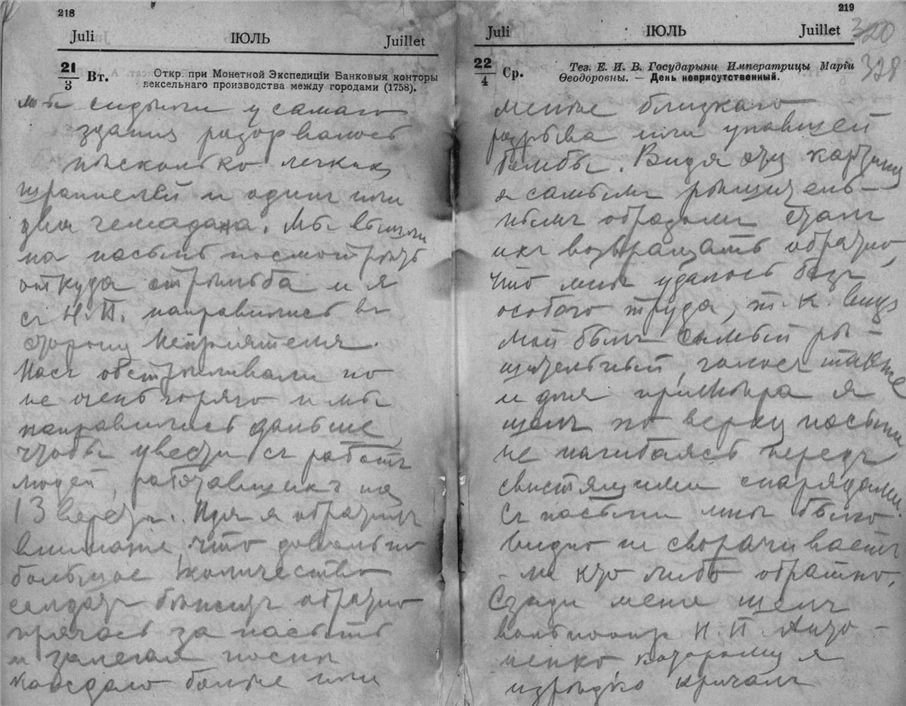 218
Juli ІЮЛЬ Juillet
21/3 Вт. Откр. при Монетной Экспедиціи Банковыя конторы
вексельнаго производства между городами (1758).
мы сидѣли у самаго
зданія разорвалось
нѣсколько легких
шрапнелей и один или
два чемадана. Мы вышли
на насыпь посмотрѣть
откуда стрѣльба и я
съ Н.П. направились въ
сторону Непріятеля.
Насъ обстрѣливали но
не очень горячо и мы
направились дальше
чтобы увести съ работъ
людей, работавшихъ на
13 верстѣ. Идя я обратилъ
вниманіе, что довольно
большое количество
солдатъ бѣжитъ обратно
прячась за насыпь
и залегая послѣ
каждаго болѣе или
219
Juli ІЮЛЬ Juillet
320
328
22/4 Ср. Тез. Е. И. В. Государыни Императрицы Маріи
Ѳеодоровны. — День неприсутственный.
менѣе близкаго
разрыва или упавшей
бомбы. Видя эту картину
я самымъ рѣшитель-
нымъ образомъ сталъ
ихъ возвращать обратно,
что мнѣ удалось безъ
особаго труда, т. к. видъ
мой былъ самый рѣ-
шительный, голосъ также
и для примѣра я
шелъ по верху насыпи
не нагибаясь передъ
свистящими снарядами.
Съ насыпи мнѣ было
видно не сворачиваетъ
ли кто либо обратно.
Сзади меня шелъ
Н. П. Анто-
ненко которому я
изрѣдко кричалъ